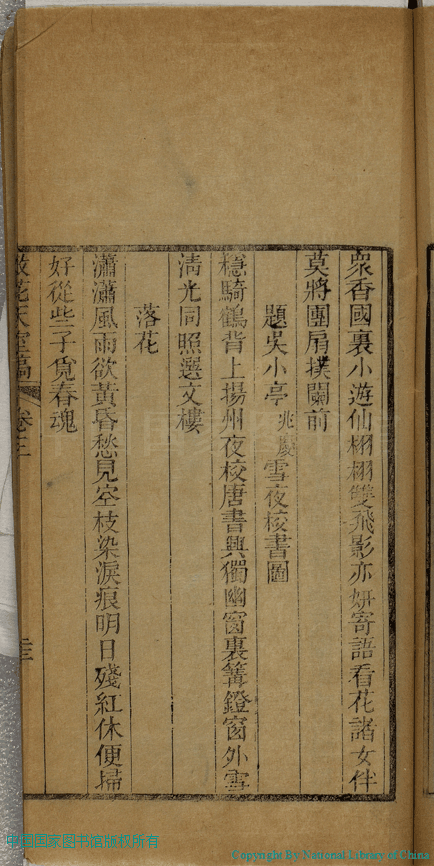 眾香國裏小遊仙栩栩雙飛影亦妍寄語看花諸女伴
莫將團扇撲闌前
題吳小亭兆慶雪夜校書圖
穩騎鶴背上揚州夜校唐書興獨幽窗裏篝鐙窗外雪
淸光同照選文樓
落花
瀟瀟風雨欲黃昏愁見空枝染淚痕明日殘紅休便掃
好從些子覓春魂
散花天室稿 卷三
中国国家图书馆版权所有
Copyright By National Library of China